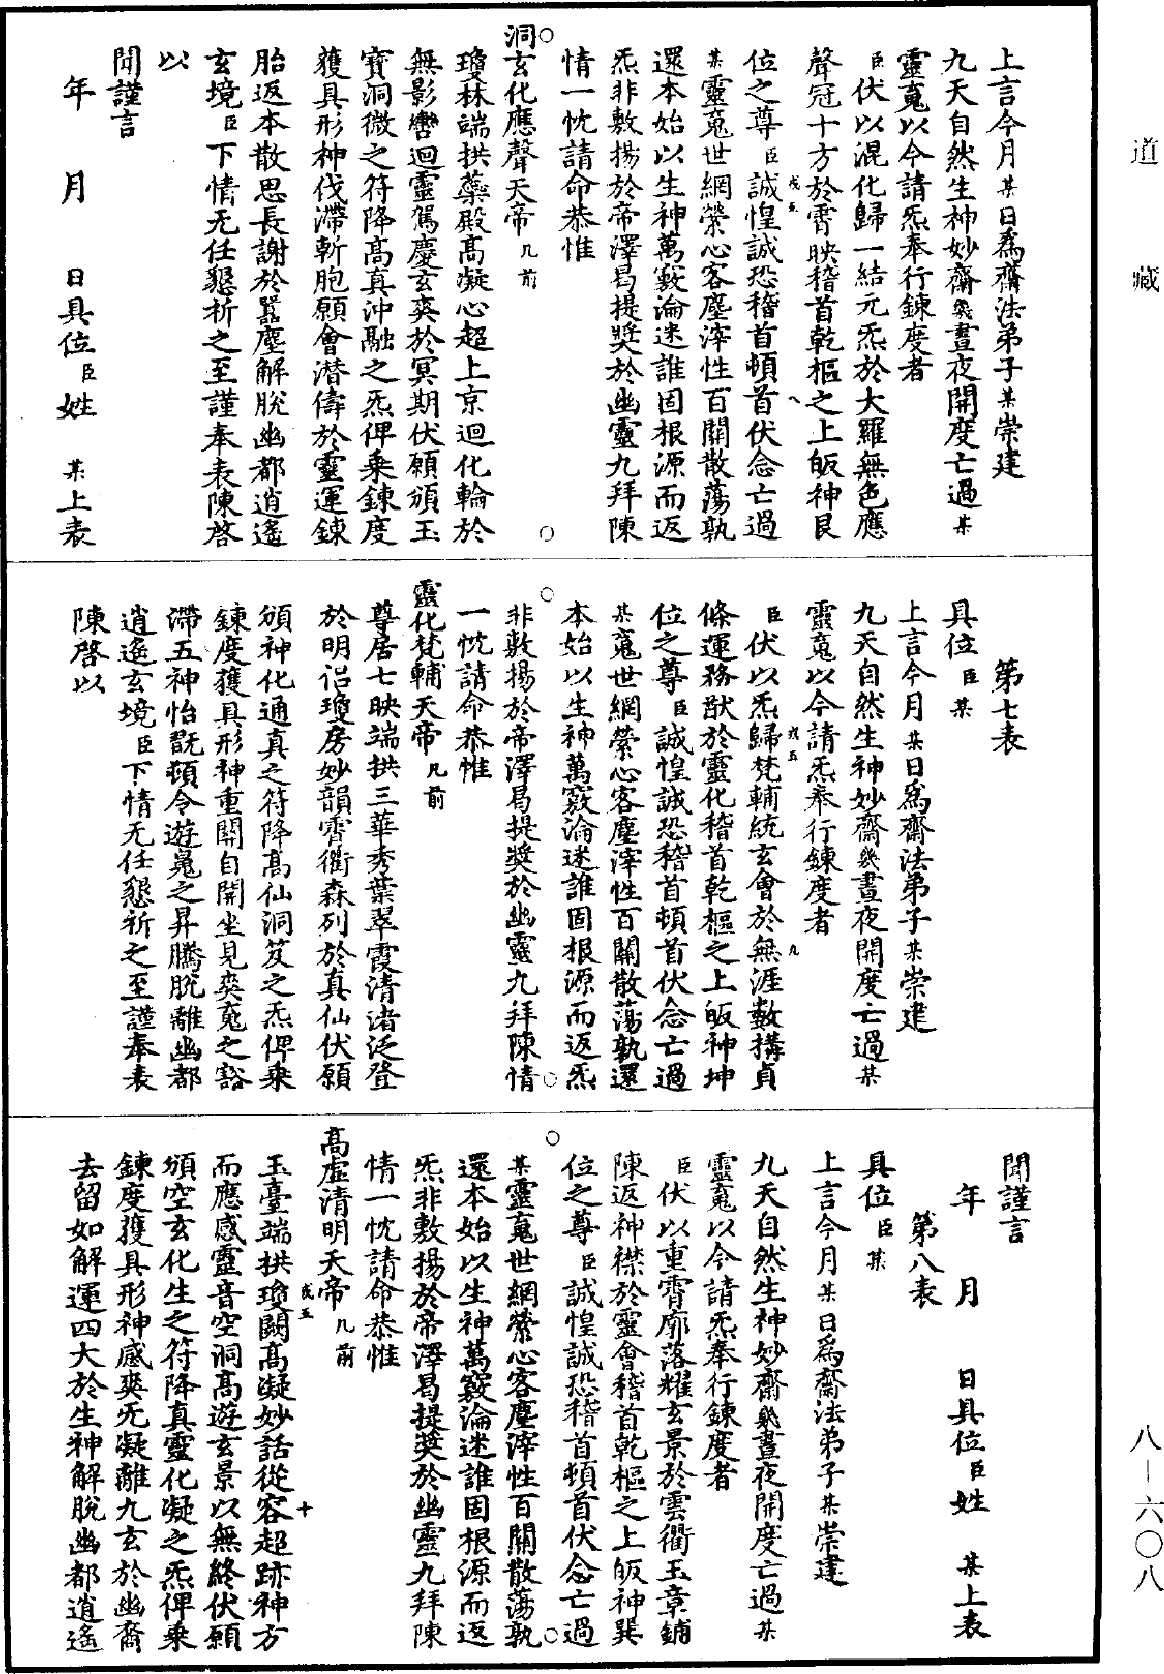 道藏
八—六〇八
上言今月某日爲齋法弟子某崇建
九天自然生神妙齋幾晝夜開度亡過某
靈䰟以今請炁奉行鍊度者
臣伏以混化歸一結元炁於大羅無色應
聲冠十方於霄映稽首乾樞之上皈神艮
戊五 八
位之尊臣誠惶誠恐稽首頓首伏念亡過
某靈䰟世網縈心客塵滓性百關散蕩孰
還本始以生神萬竅淪迷誰固根源而返
炁非敷揚於帝澤曷提奬於幽靈九拜陳
情一忱請命恭惟
洞玄化應聲天帝几前
瓊林端拱藥殿高凝心超上京迴化輪於
無影轡迴靈駕慶玄爽於冥期伏願頒玉
寶洞微之符降高真沖融之炁俾乗鍊度
獲具形神伐滯斬胞願會潛偉於靈運鍊
胎返本散思長謝於囂塵解脫幽都逍遙
玄境臣下情无任懇祈之至謹奉表陳啓
以
聞謹言
年 月 日具位臣姓 某上表
第七表
具位臣某
上言今月某日爲齋法弟子某崇建
九天自然生神妙齋幾晝夜開度亡過某
靈䰟以今請炁奉行鍊度者
戊五 九
臣伏以炁歸梵輔統玄會於無涯數搆貞
條運務猷於靈化稽首乾樞之上皈神坤
位之尊臣誠惶誠恐稽首頓首伏念亡過
某䰟世網縈心客塵滓性百關散蕩孰還
本始以生神萬竅淪迷誰固根源而返炁
非敷揚於帝澤曷提奬於幽靈九拜陳情
一忱請命恭惟
靈化梵輔天帝几前
尊居七映端拱三華秀葉翠霞清渚泛登
於明侣瓊房妙韻霄衢森列於真仙伏願
頒神化通真之符降高仙洞笈之炁俾乗
鍊度獲具形神重關自開坐見爽䰟之豁
滯五神怡翫頓令遊䰟之昇騰脫離幽都
逍遙玄境臣下情无任懇祈之至謹奉表
陳啓以
聞謹言
年 月 日具位臣姓 某上表
第八表
具位臣某
上言今月某日爲齋法弟子某崇建
九天自然生神妙齋幾晝夜開度亡過某
靈䰟以今請炁奉行鍊度者
臣伏以重霄廓落耀玄景於雲衢玉章鋪
陳返神襟於靈會稽首乾樞之上皈神巽
位之尊臣誠惶誠恐稽首頓首伏念亡過
某靈䰟世網縈心客塵滓性百關散蕩孰
還本始以生神萬竅淪迷誰固根源而返
炁非敷揚於帝澤曷提奬於幽靈九拜陳
情一忱請命恭惟
高虛清明天帝几前
戊五 十
玉臺端拱瓊闕高凝妙話從容超跡神方
而應感靈音空洞高遊玄景以無終伏願
頒空玄化生之符降真靈化凝之炁俾乗
鍊度獲具形神感爽旡凝離九玄於幽裔
去留如解運四大於生神解脫幽都逍遙